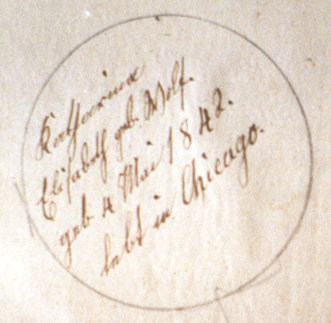 Katharina
Elisabeth geb. Wolf.
geb 4 Mai 1842.
lebt in Chicago.